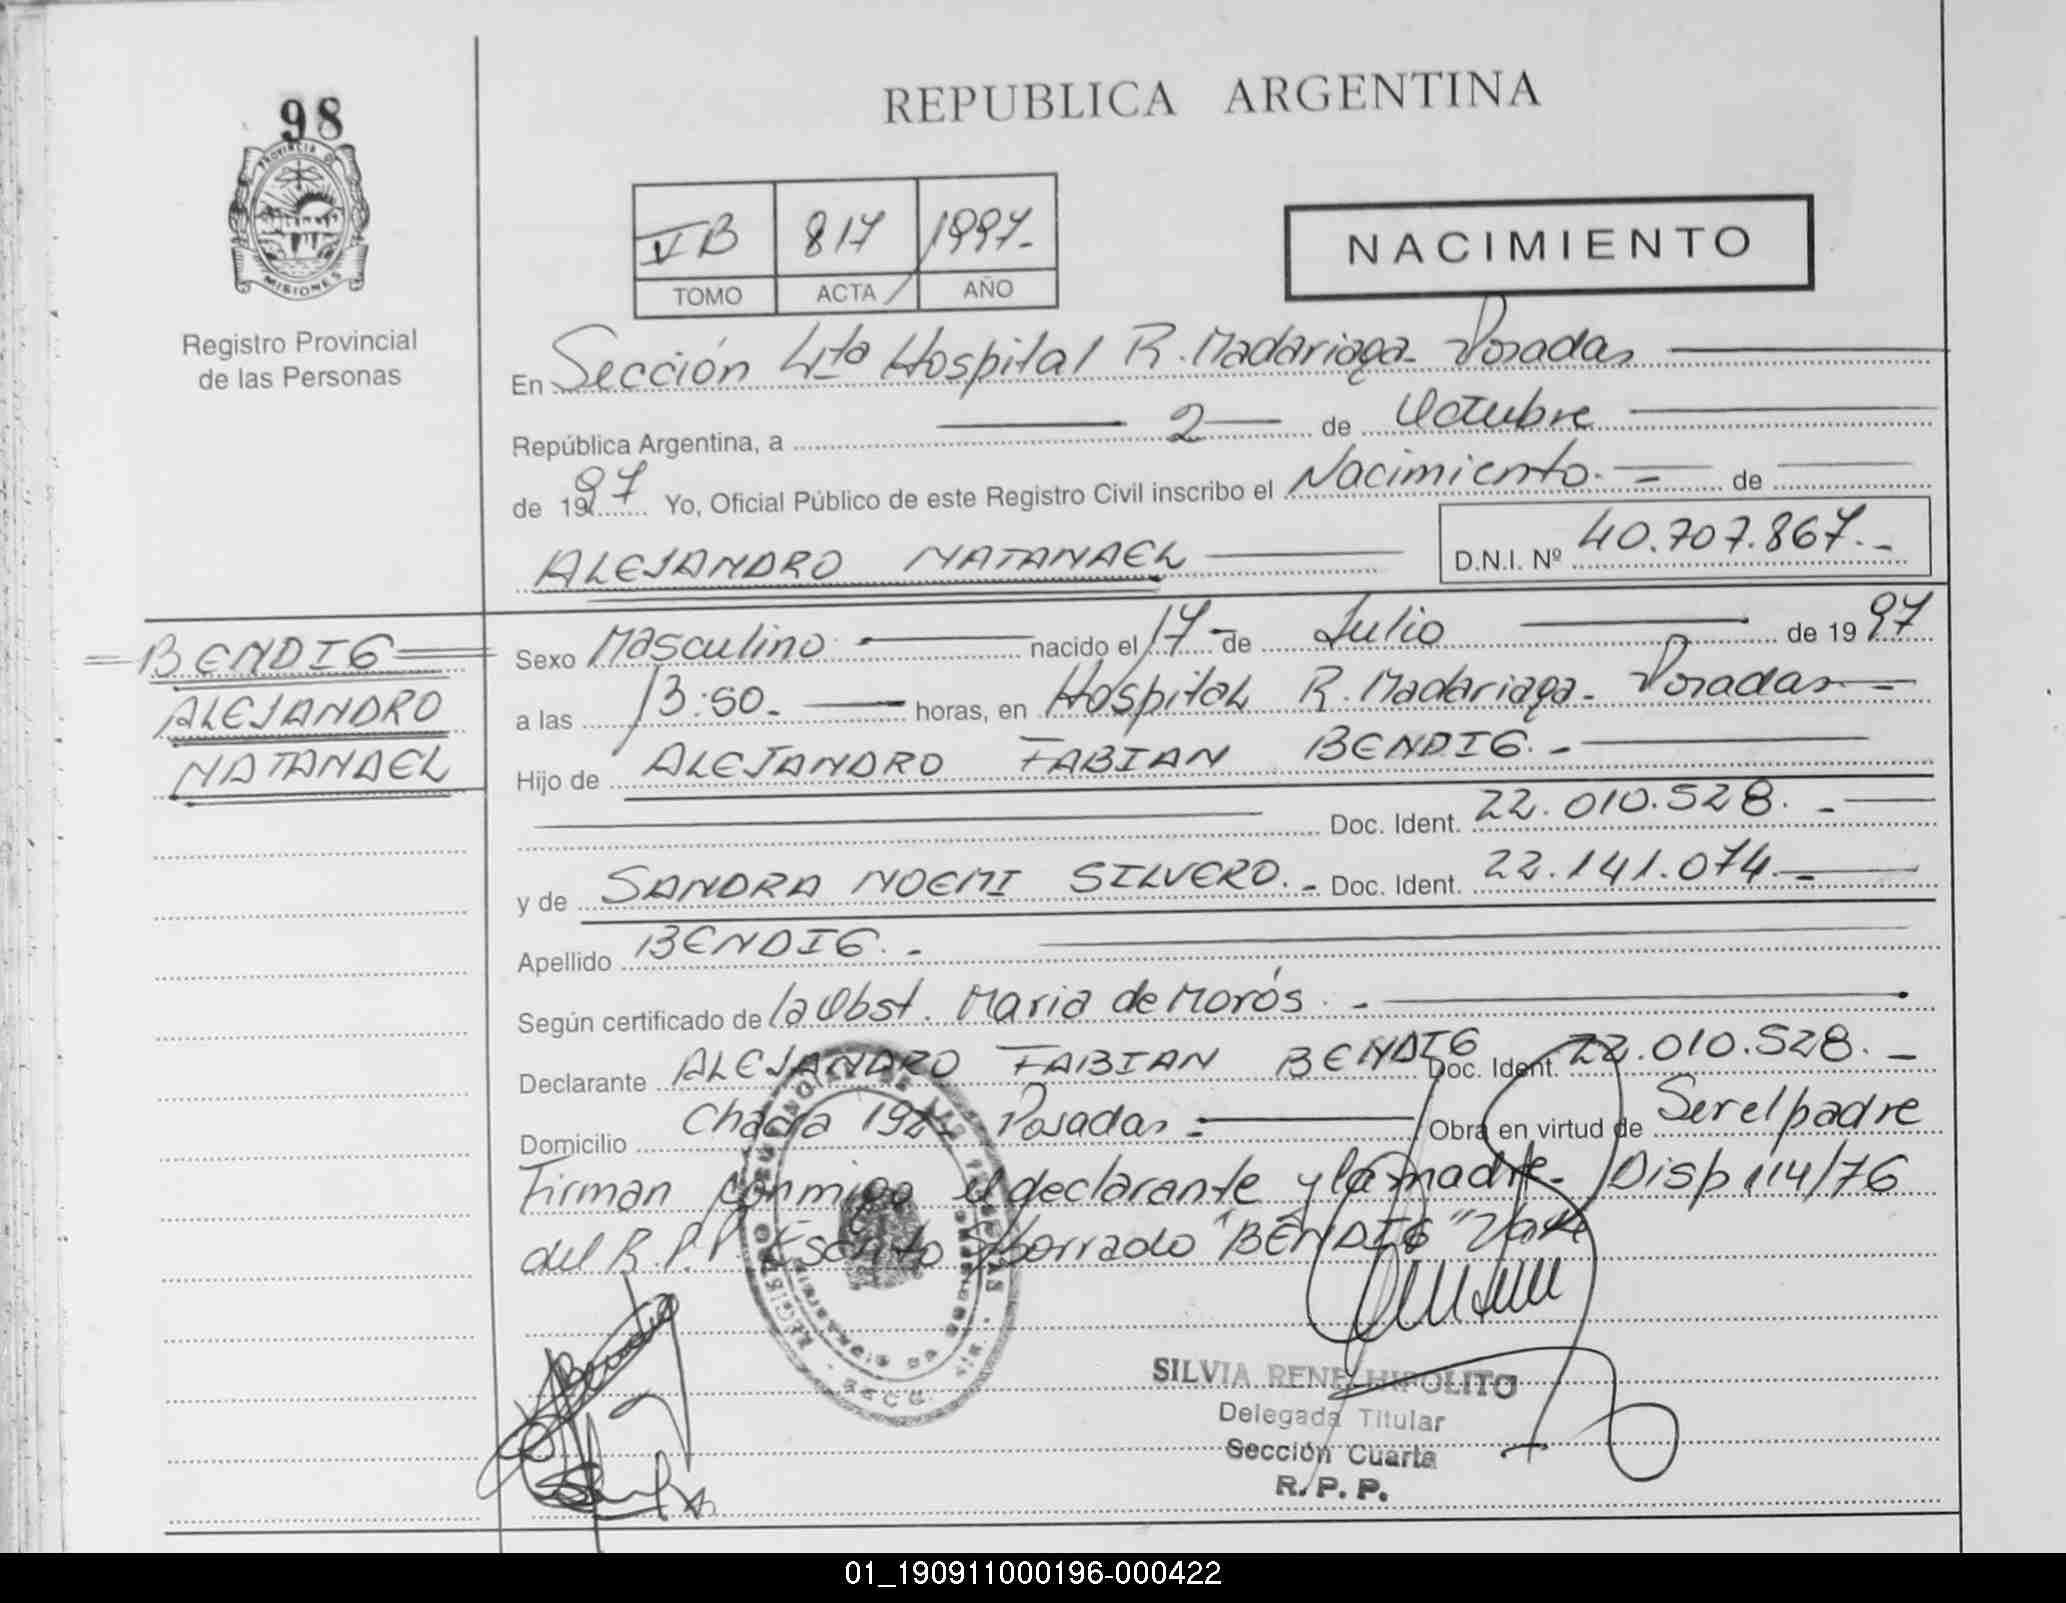 98
REPUBLICA ARGENTINA
PROVINCIA D
MISIONES
Registro Provincial
de las Personas
VB 817 1997.-
TOMO ACTA AÑO
NACIMIENTO
En Sección 4ta Hospital R. Madariaga - Posadas
República Argentina, a 2 de Octubre
de 1997 Yo, Oficial Público de este Registro Civil inscribo el Nacimiento.- de
ALEJANDRO NATANAEL D.N.I. Nº 40.707.867.-
BENDIG
ALEJANDRO
NATANAEL
Sexo Masculino nacido el 17 - de Julio de 1997
a las 13:50. horas, en Hospital R. Madariaga - Posadas
Hijo de ALEJANDRO FABIAN BENDIG.-
Doc. Ident. 22.010.528.-
y de SANDRA NOEMI SILVERO.- Doc. Ident. 22.141.074.-
Apellido BENDIG.-
Según certificado de la Obst. Maria de Morós.-
Declarante ALEJANDRO FABIAN BENDIG Doc. Ident. 22.010.528.-
Domicilio Chacra 192- Posadas - Obra en virtud de Ser el padre
Firman conmigo el declarante y la madre - Disp 114/76
del R.P.P. Escrito S/borrado "BENDIG" Vale
SILVIA RENE HIPOLITO
Delegada Titular
Sección Cuarta
R. P. P.
01_190911000196-000422